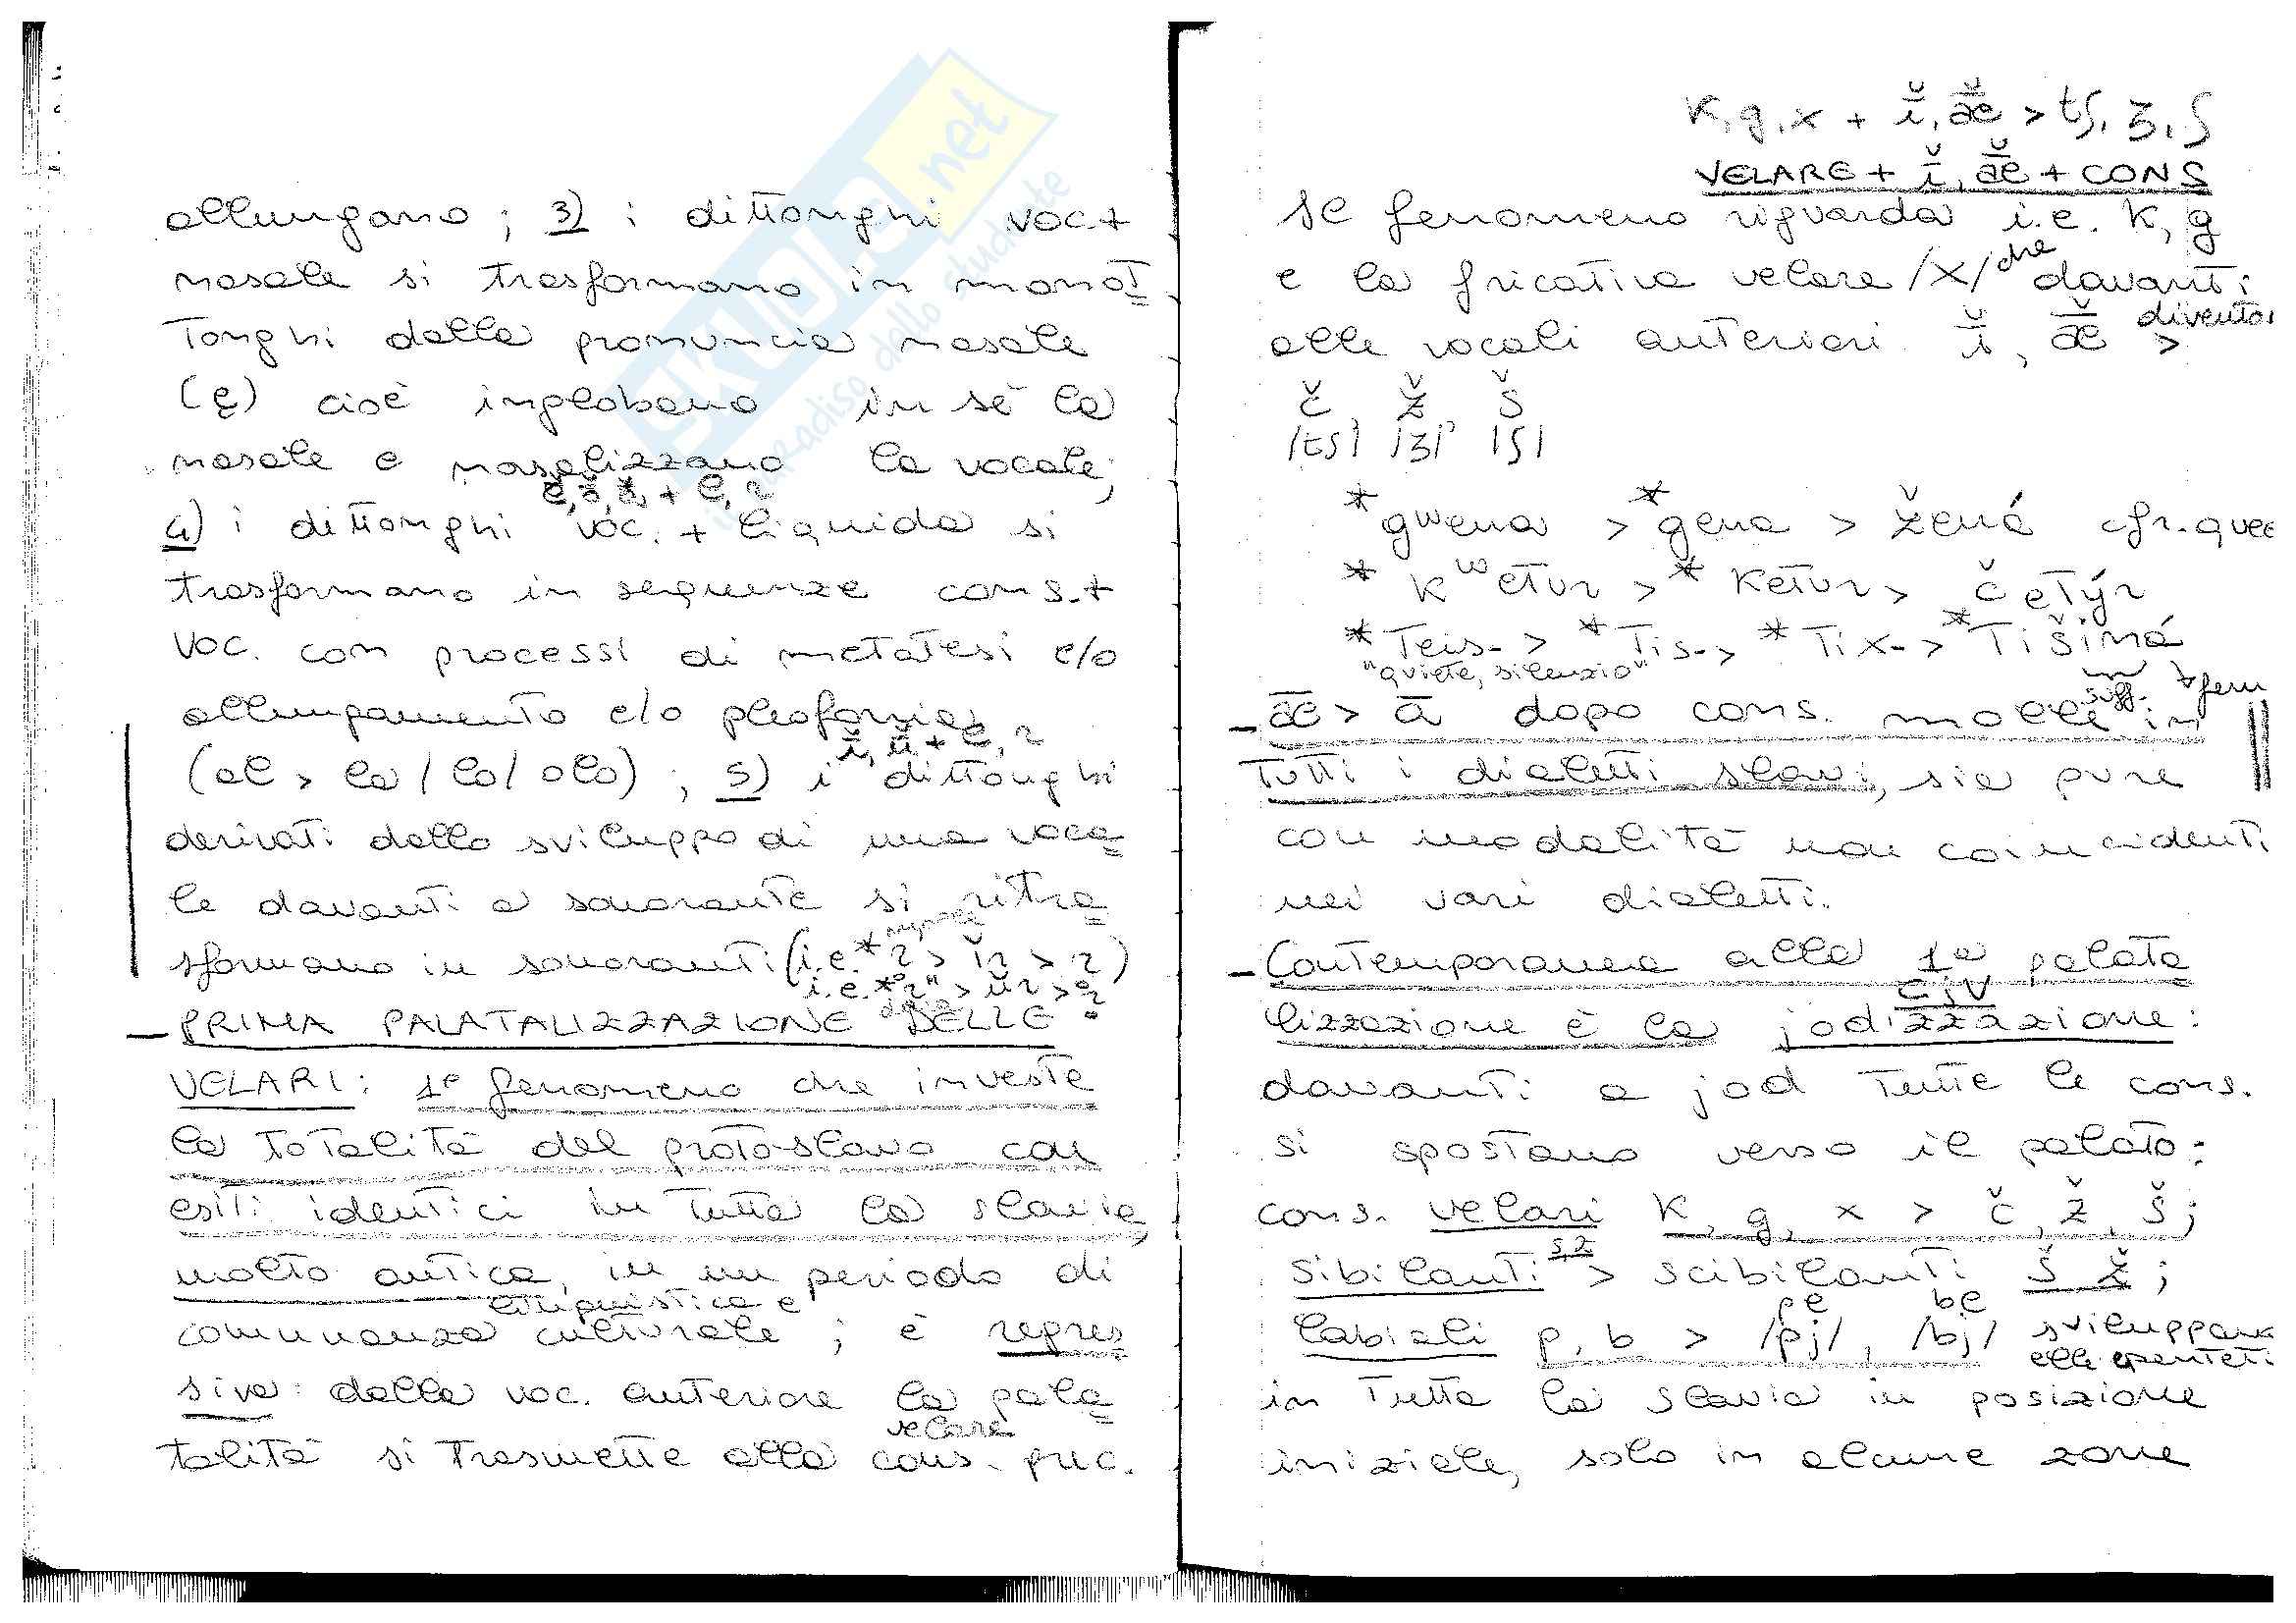 allungano ; 3) i dittonghi voc +
nasale si trasformano in monot
tonghi dalla pronuncia nasale
(ę) cioè inglobano in sé la
nasale e nasalizzano la vocale;
4) i dittonghi voc. + liquida si
trasformano in sequenze cons. +
voc. con processi di metatesi e/o
allungamento e/o pleofonia
(al > la / lo / olo) ; 5) i dittonghi
derivati dallo sviluppo di una voca
le davanti a sonorante si ritra
sformano in sonoranti (i.e. *r̥ > ĭr > r̥)
i.e. *r̥ > ŭr > r̥
– PRIMA PALATALIZZAZIONE DELLE
VELARI: 1° fenomeno che investe
la totalità del protoslavo con
esiti identici in tutta la slavia,
molto antica, in un periodo di
linguistica e
comunanza culturale ; è regres
siva: dalla voc. anteriore la pala
velare
talità si trasmette alla cons. prec.
K, g, x + ī̆, ǣ̆ > tʃ, ʒ, ʃ
VELARE + ī̆, ǣ̆ + CONS
Il fenomeno riguarda i.e. K, g
e la fricativa velare /x/ che davanti
alle vocali anteriori ī̆, ǣ̆ >
č, ž, š
/tʃ/ /ʒ/ /ʃ/
*gʷena > *gena > žená cfr.
*kʷetur > *Ketur > četýr
*Teis- > *Tis-> *Tix-> *Tišiná
"quiete, silenzio"
suff.
– ǣ > ā dopo cons. molli in
tutti i dialetti slavi, sia pure
con modalità non coincidenti
nei vari dialetti.
– Contemporanea alla 1ª palata
CjV
lizzazione è la jodizzazione:
davanti a jod tutte le cons.
si spostano verso il palato:
cons. velari K, g, x > č, ž, š;
s, z
sibilanti > scibilanti š ž;
pl bl
labiali p, b > /pj/, /bj/ sviluppano
in tutta la slavia in posizione
iniziale, solo in alcune zone